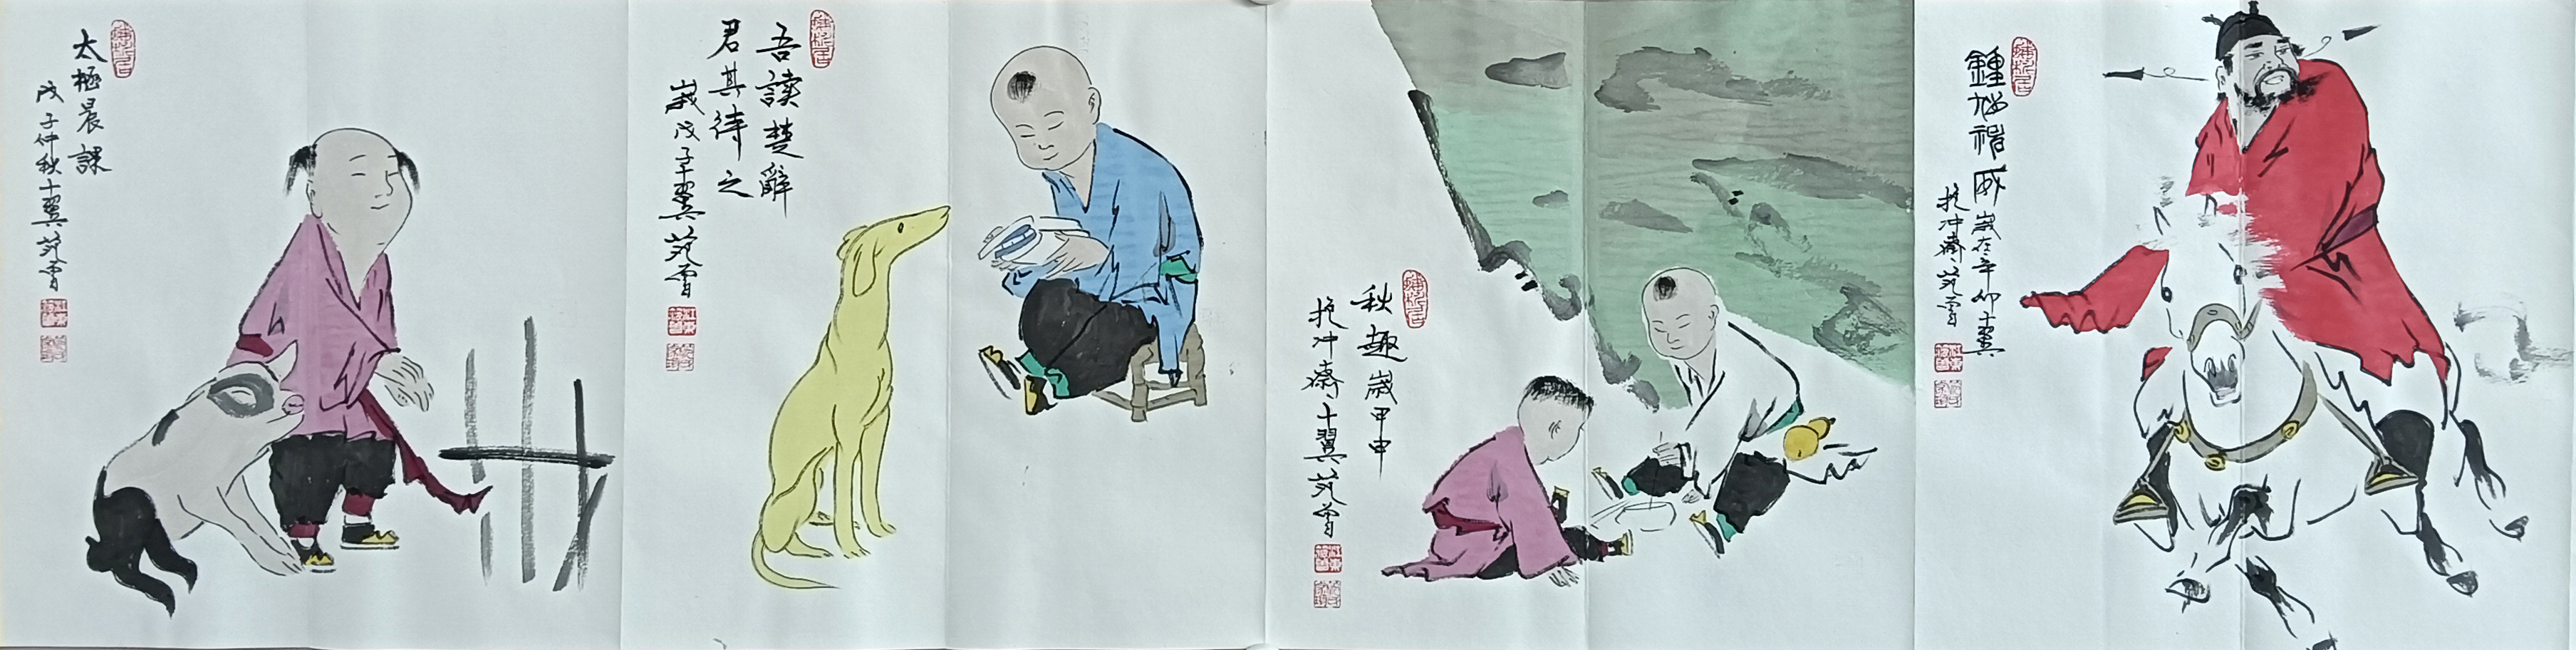 太極晨課
戊子仲秋十翼范曾
吾讀楚辭
君其待之
歲戊子十翼范曾
秋趣歲甲申
抱冲齋十翼范曾
鍾馗稽威歲在辛卯十翼
抱冲齋范曾